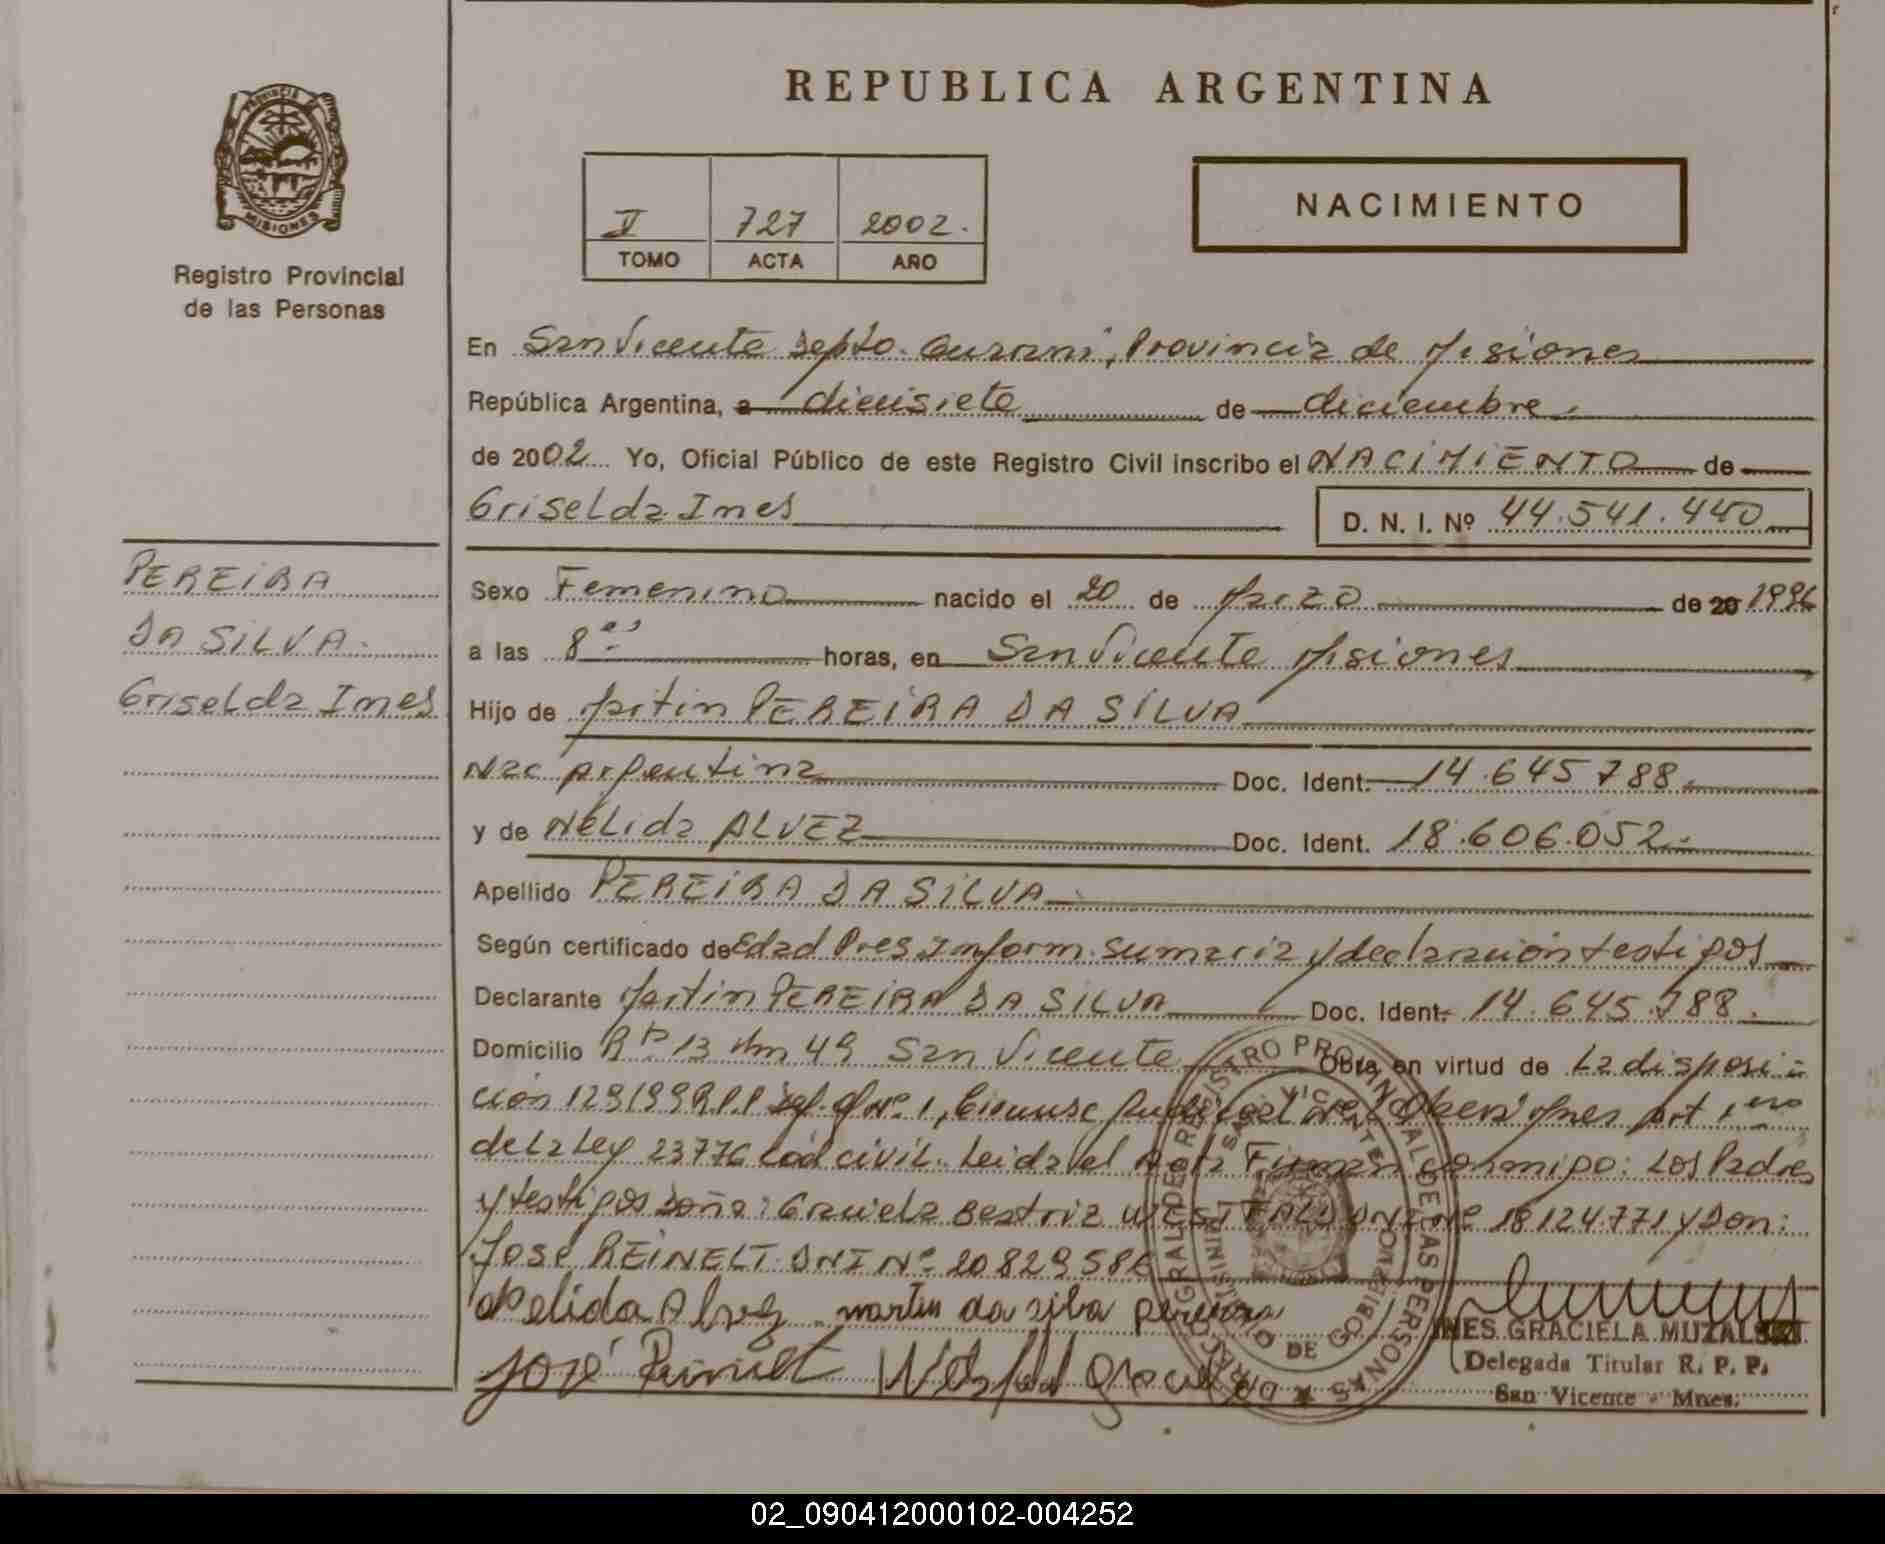 REPUBLICA ARGENTINA
PROVINCIA DE
MISIONES
Registro Provincial
de las Personas
II 727 2002.
TOMO ACTA AÑO
NACIMIENTO
En San Vicente Depto. Guarani, Provincia de Misiones
República Argentina, a diecisiete de diciembre
de 2002 Yo, Oficial Público de este Registro Civil inscribo el NACIMIENTO de
Griselda Ines D. N. I. Nº 44.541.440
PEREIRA
DA SILVA.
Griselda Ines
Sexo Femenino nacido el 20 de Marzo de 20 1996
a las 8 horas, en San Vicente Misiones
Hijo de Martin PEREIRA DA SILVA
Nac Argentina Doc. Ident. 14.645788.
y de Nélida ALVEZ Doc. Ident. 18.606.052.
Apellido PEREIRA DA SILVA
Según certificado de Edad Pres Inform. Sumaria y declaración testigos
Declarante Martin PEREIRA DA SILVA Doc. Ident. 14.645.788.
Domicilio Rta 13 Km 49 San Vicente Obra en virtud de La disposi
ción 129/99 R.P.P Nº 1, de Obera Mnes Art 1
de la Ley 23776 Cod civil. Leida el Acta Firman conmigo: Los Padres
y testigos Doña: Graciela Beatriz WESTFALD DNI Nº 18124.771 y Don:
Jose REINELT DNI Nº 20829586
Nelida Alvez martin da silva pereira
José Reinelt Westfald Graciela
INES GRACIELA MUZALSKI
Delegada Titular R. P. P.
San Vicente - Mnes.
DIRAC. GRAL. DE REGISTRO PROVINCIAL DE LAS PERSONAS
SAN VICENTE
MINISTERIO DE GOBIERNO
02_090412000102-004252